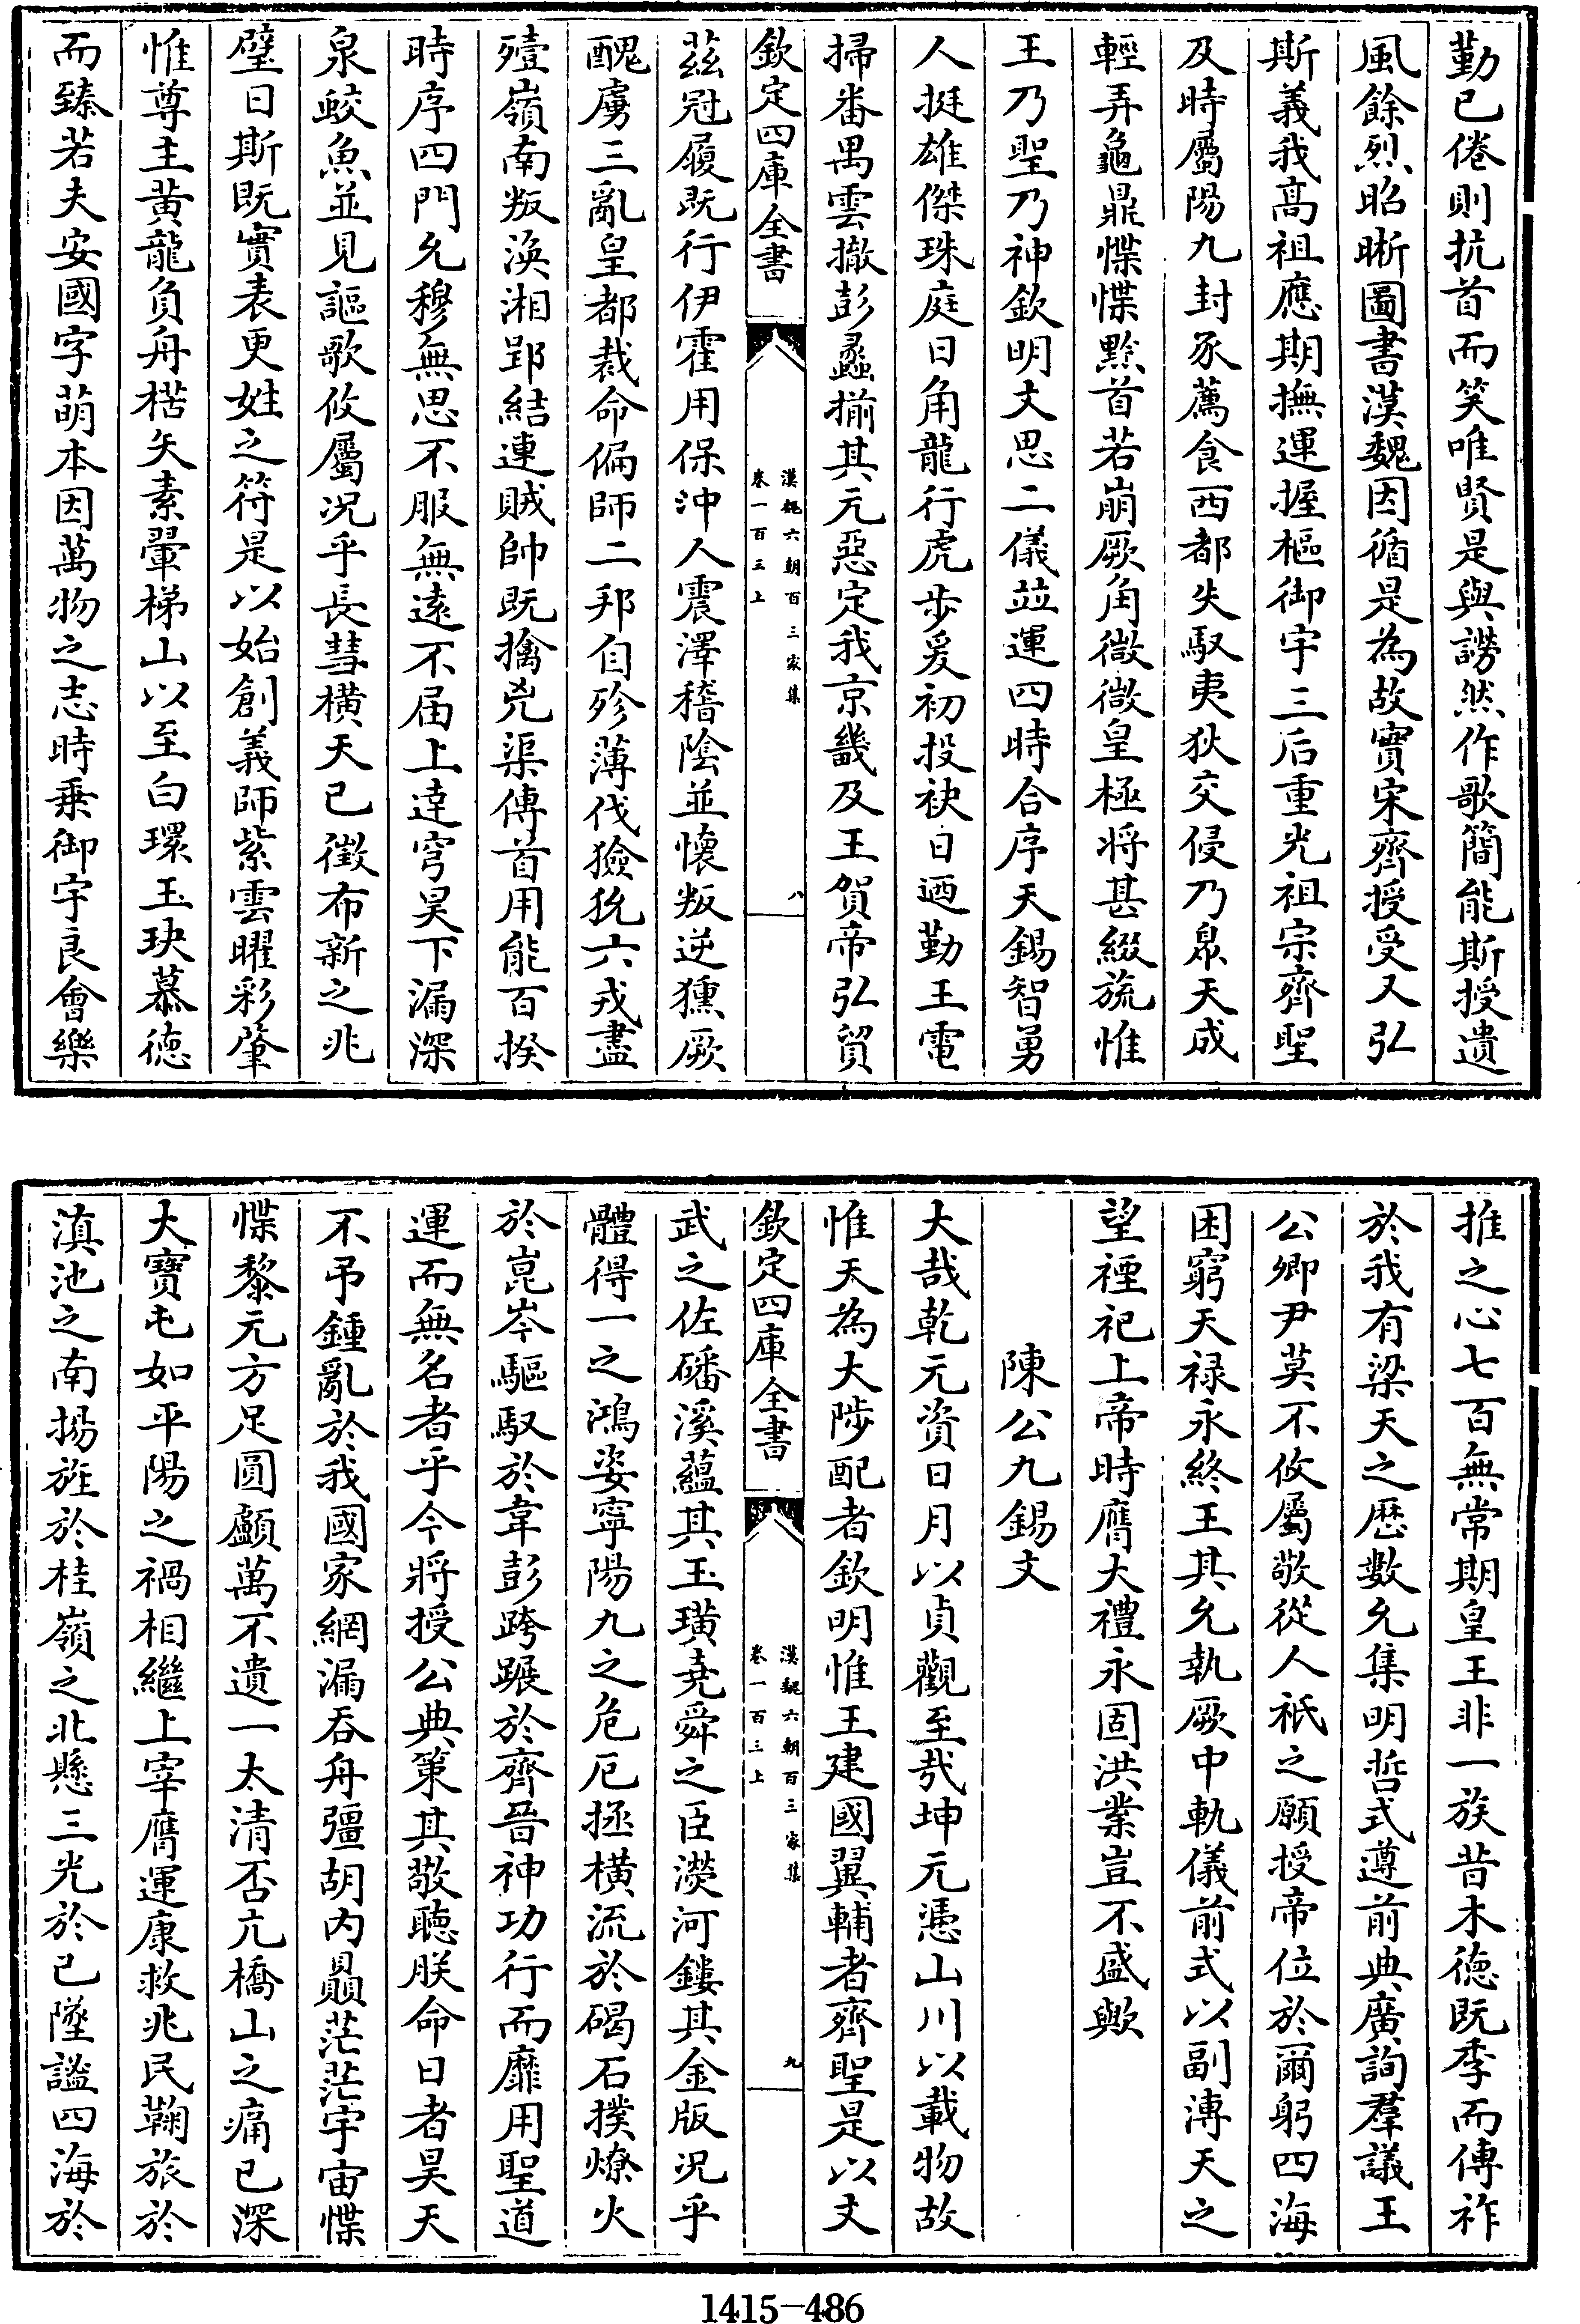 勤已倦則抗首而笑唯賢是與謗然作歌簡能斯授遺
風餘烈昭晰圖書漢魏因循是為故實宋齊授受又弘
斯義我高祖應期撫運握樞御宇三后重光祖宗齊聖
及時屬陽九封豕薦食西都失馭夷狄交侵乃眾天成
輕弄龜鼎惵惵黔首若崩厥角微微皇極將甚綴旒惟
王乃聖乃神欽明文思二儀並運四時合序天錫智勇
人挺雄傑珠庭日角龍行虎步爰初投袂日迺勤王電
掃番禺雲撤彭蠡揃其元惡定我京畿及王賀帝弘貿
欽定四庫全書
漢魏六朝百三家集
卷一百三上
八
茲冠履既行伊霍用保沖人震澤稽陰並懷叛逆獯厥
醜虜三亂皇都裁命偏師二邦自殄薄伐獫狁六戎盡
殪嶺南叛渙湘郢結連賊帥既擒兇渠傳首用能百揆
時序四門允穆無思不服無遠不届上達穹昊下漏深
泉蛟魚並見謳歌攸屬況乎長彗橫天已徵布新之兆
璧日斯既實表更姓之符是以始創義師紫雲曜彩肇
惟尊主黃龍負舟楛矢素翬梯山以至白環玉玦慕德
而臻若夫安國字萌本因萬物之志時乗御宇良會樂
推之心七百無常期皇王非一族昔木德既季而傳祚
於我有梁天之厯數允集明哲式遵前典廣詢羣議王
公卿尹莫不攸屬敬從人祇之願授帝位於爾躬四海
困窮天禄永終王其允執厥中軌儀前式以副溥天之
望禋祀上帝時膺大禮永固洪業豈不盛歟
陳公九錫文
大哉乾元資日月以貞觀至哉坤元憑山川以載物故
惟天為大陟配者欽明惟王建國翼輔者齊聖是以文
欽定四庫全書
漢魏六朝百三家集
卷一百三上
九
武之佐磻溪蘊其玉璜堯舜之臣濴河鏤其金版況乎
體得一之鴻姿寧陽九之危厄拯橫流於碣石撲燎火
於崑岑驅馭於韋彭跨蹍於齊晉神功行而靡用聖道
運而無名者乎今將授公典策其敬聽朕命日者昊天
不弔鍾亂於我國家網漏吞舟彊胡内贔茫茫宇宙惵
惵黎元方足圓顱萬不遺一太清否亢橋山之痛已深
大寶屯如平陽之禍相繼上宰膺運康救兆民鞠旅於
滇池之南揚旌於桂嶺之北懸三光於已墜謐四海於
1415-486